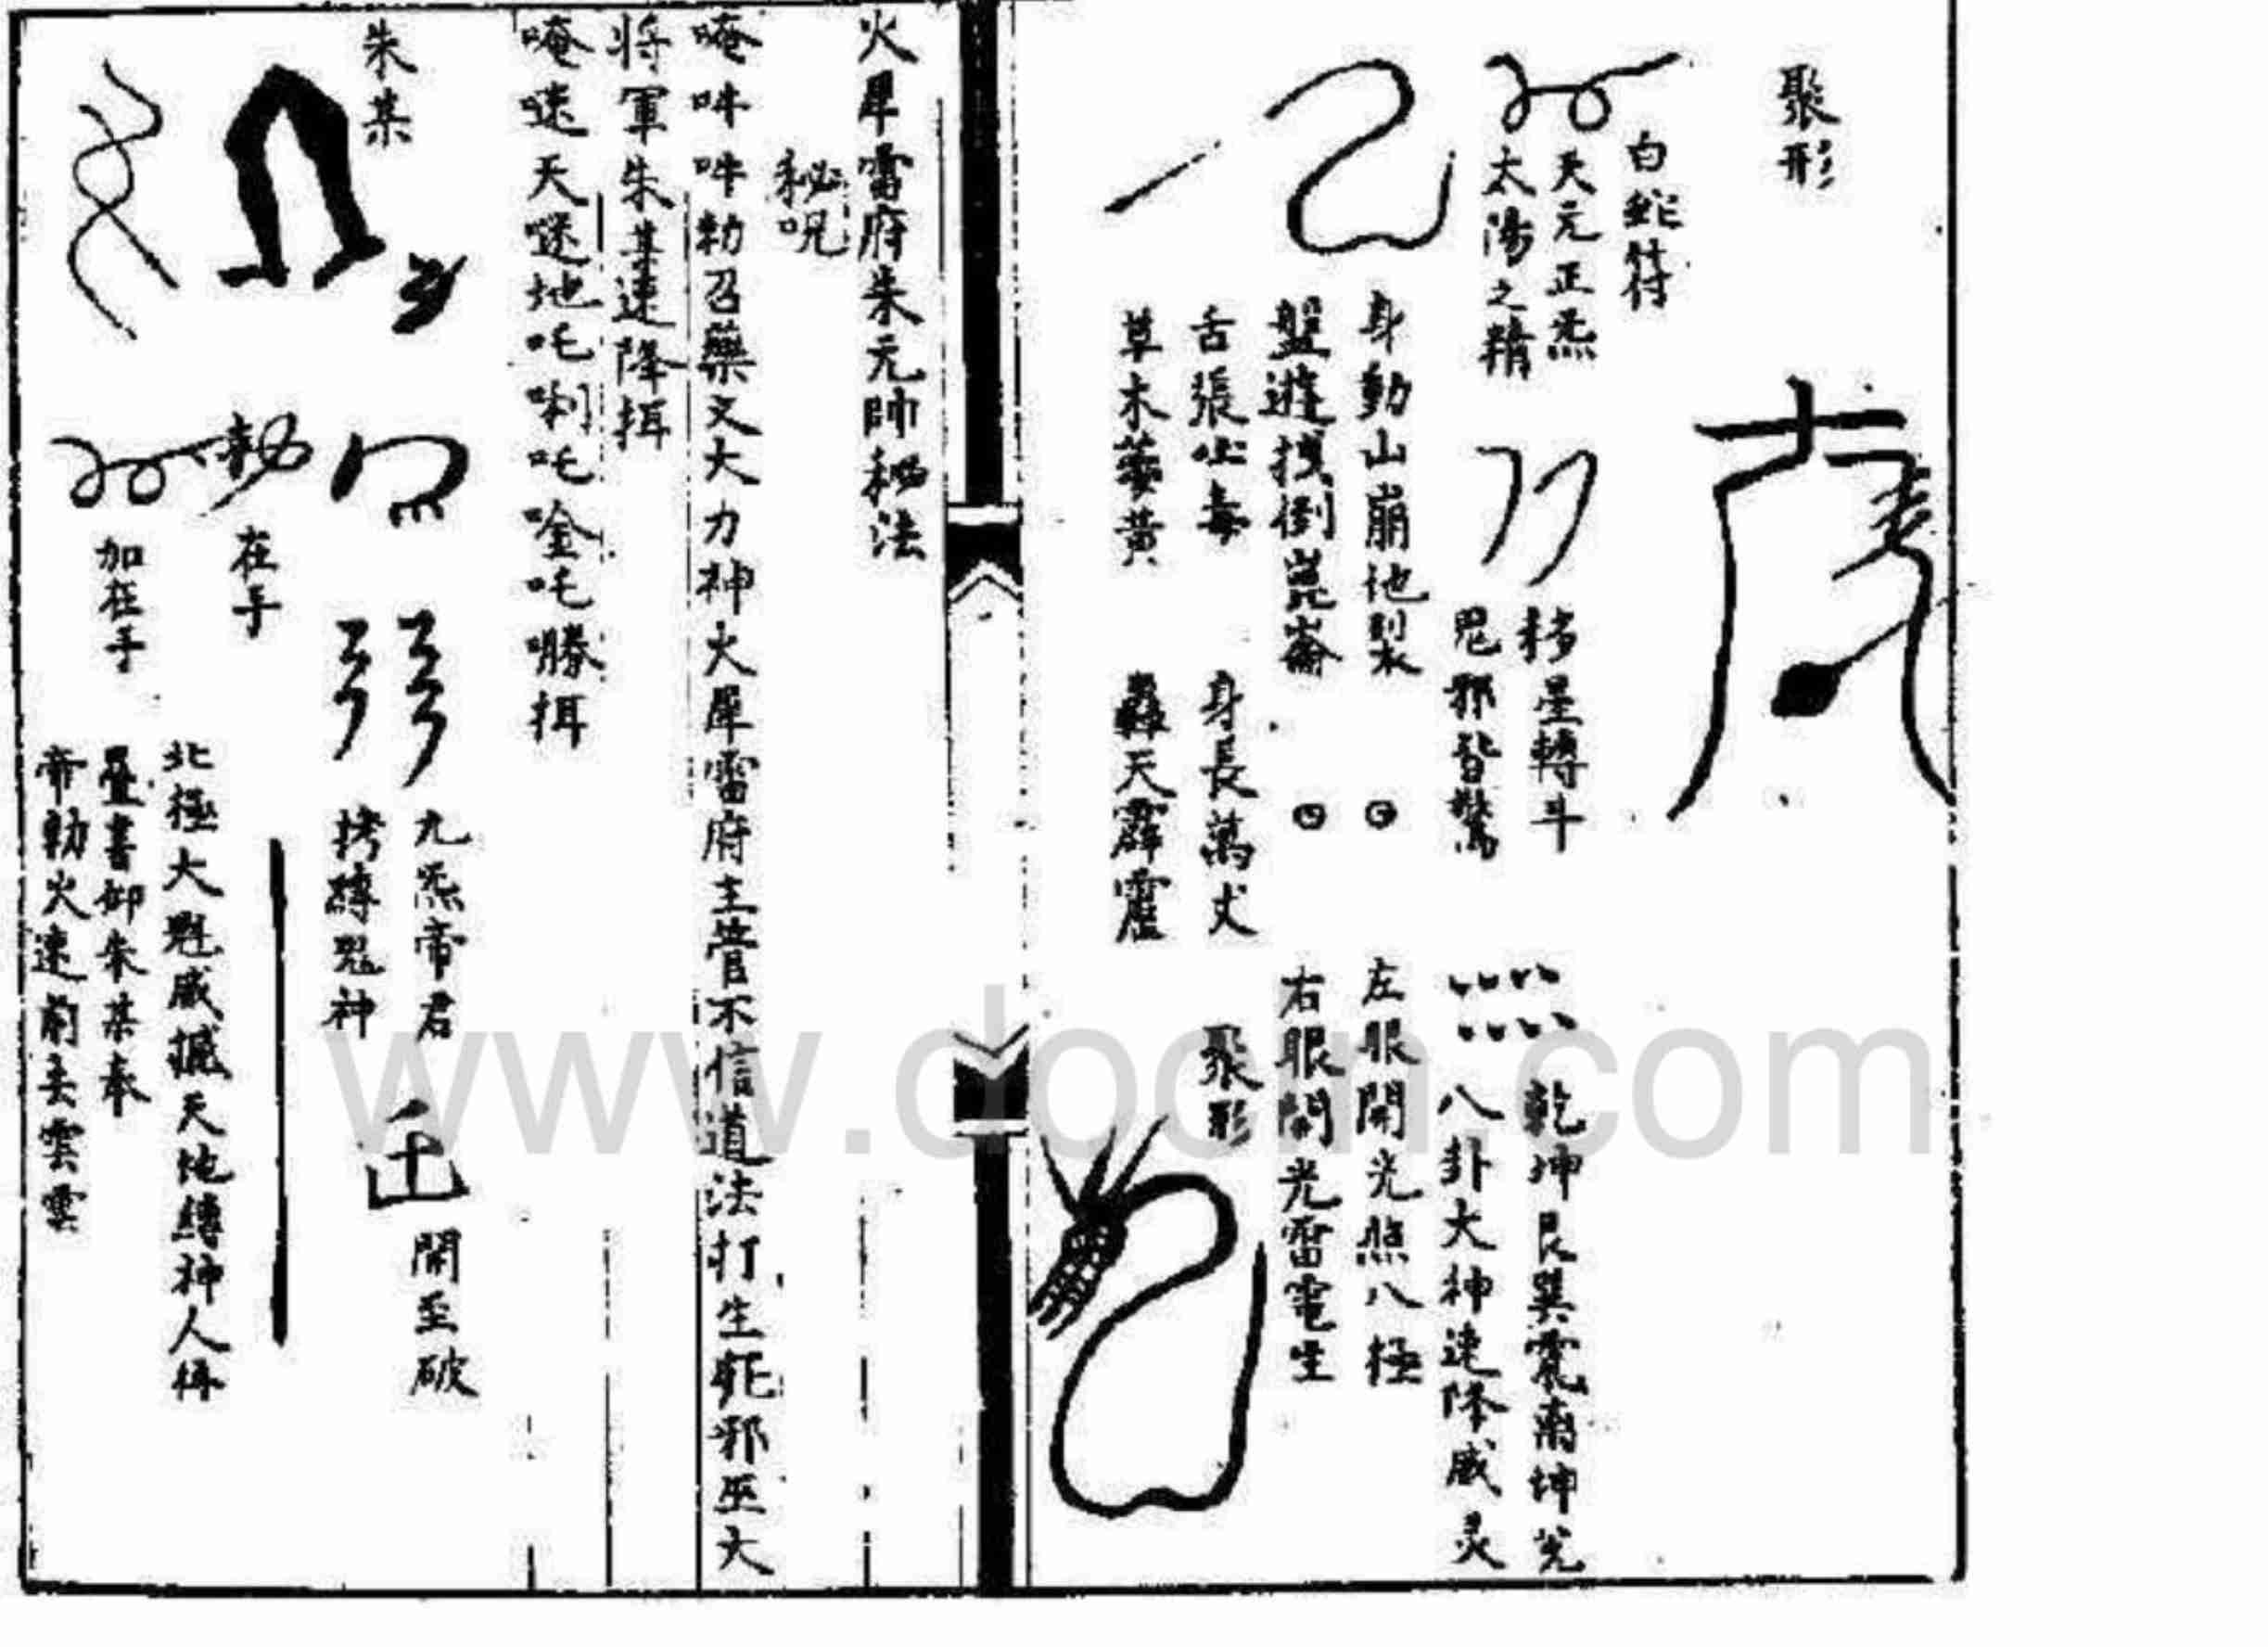 聚形
白蛇符
天元正炁
太陽之精
移星轉斗
鬼邪皆驚
乾坤艮巽震离坤兌
八卦大神速降威灵
身動山崩地裂
盤遊拔倒崑崙
左眼開光照八極
右眼開光雷電生
舌張吐毒
草木萎黃
身長萬丈
轟天霹靂
聚形
火犀雷府朱元帥秘法
秘咒
唵吽吽勅召藥叉大力神火犀雷府主管不信道法打生死邪巫大
將軍朱某速降揖
唵速天地吒唎吒唫吒揖
朱某
九炁帝君
拷縛鬼神
開至破
秘
在手
加在手
北極大魁威撼天地縛神人
疊書御朱某奉
帝勅火速前去雲雲
www.docin.com